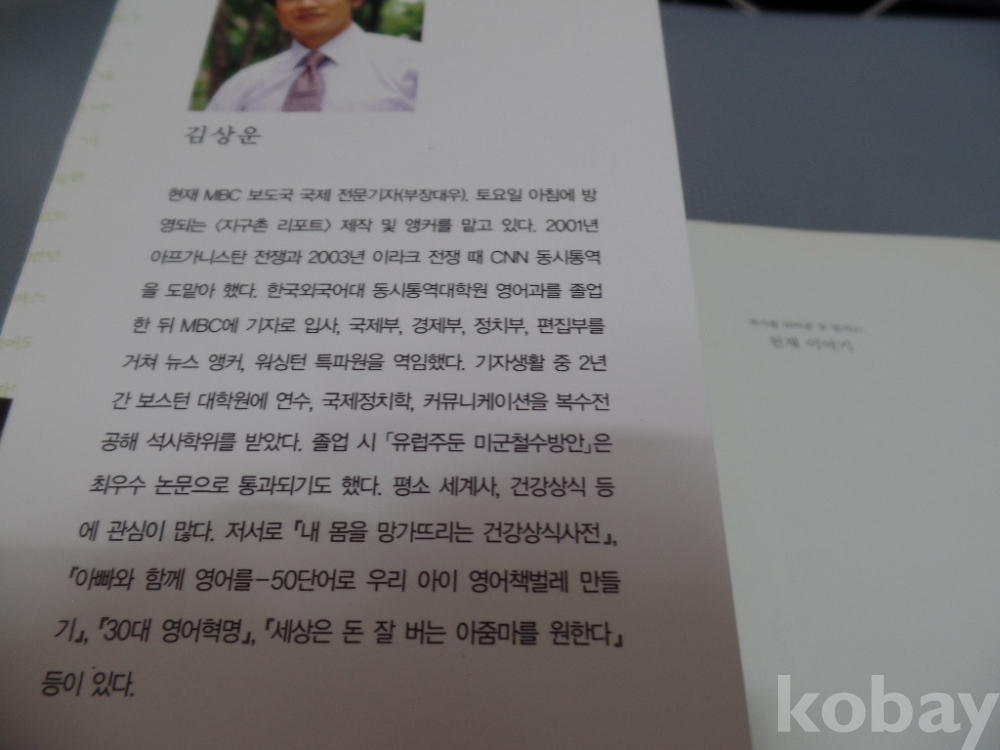 김상운
현재 MBC 보도국 국제 전문기자(부장대우). 토요일 아침에 방
영되는 〈지구촌 리포트〉 제작 및 앵커를 맡고 있다. 2001년
아프가니스탄 전쟁과 2003년 이라크 전쟁 때 CNN 동시통역
을 도맡아 했다. 한국외국어대 동시통역대학원 영어과를 졸업
한 뒤 MBC에 기자로 입사, 국제부, 경제부, 정치부, 편집부를
거쳐 뉴스 앵커, 워싱턴 특파원을 역임했다. 기자생활 중 2년
간 보스턴 대학원에 연수, 국제정치학, 커뮤니케이션을 복수전
공해 석사학위를 받았다. 졸업 시 「유럽주둔 미군철수방안」은
최우수 논문으로 통과되기도 했다. 평소 세계사, 건강상식 등
에 관심이 많다. 저서로 『내 몸을 망가뜨리는 건강상식사전』,
『아빠와 함께 영어를-50단어로 우리 아이 영어책벌레 만들
기』, 『30대 영어혁명』, 『세상은 돈 잘 버는 아줌마를 원한다』
등이 있다.
이야기
kobay